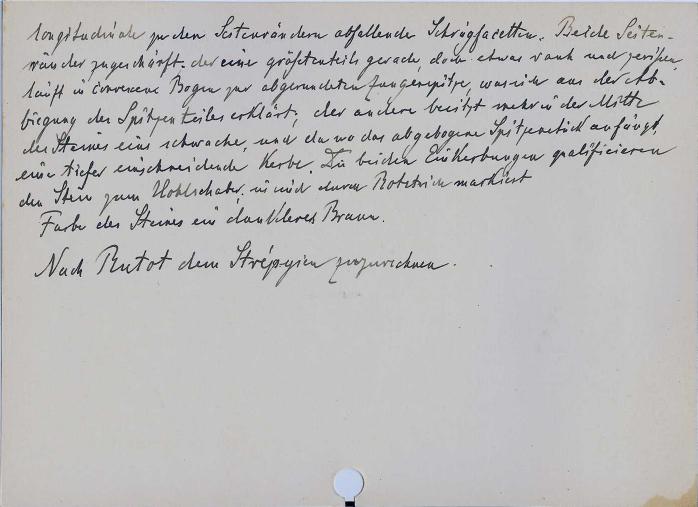 longitudinale zu den Seitenrändern abfallende Schrägfacetten. Beide Seiten-
ränder zugeschärft. der eine größtenteils gerade, doch etwas rauh und
läuft in convexem Bogen zur abgerundeten Zungenspitze, was sich aus der Ab-
biegung des Spitzenteiles erklärt; der andere besitzt mehr in der Mitte
des Steines eine schwache, und da wo das abgebogene Spitzenstück anfängt,
eine tiefer einschneidende Kerbe. Die beiden Einkerbungen qualificieren
den Stein zum Hohlschaber, sind durch Rotstrich markiert
Farbe des Steines ein dunkleres Braun.
Nach Rutot dem Strépyien zuzurechnen.